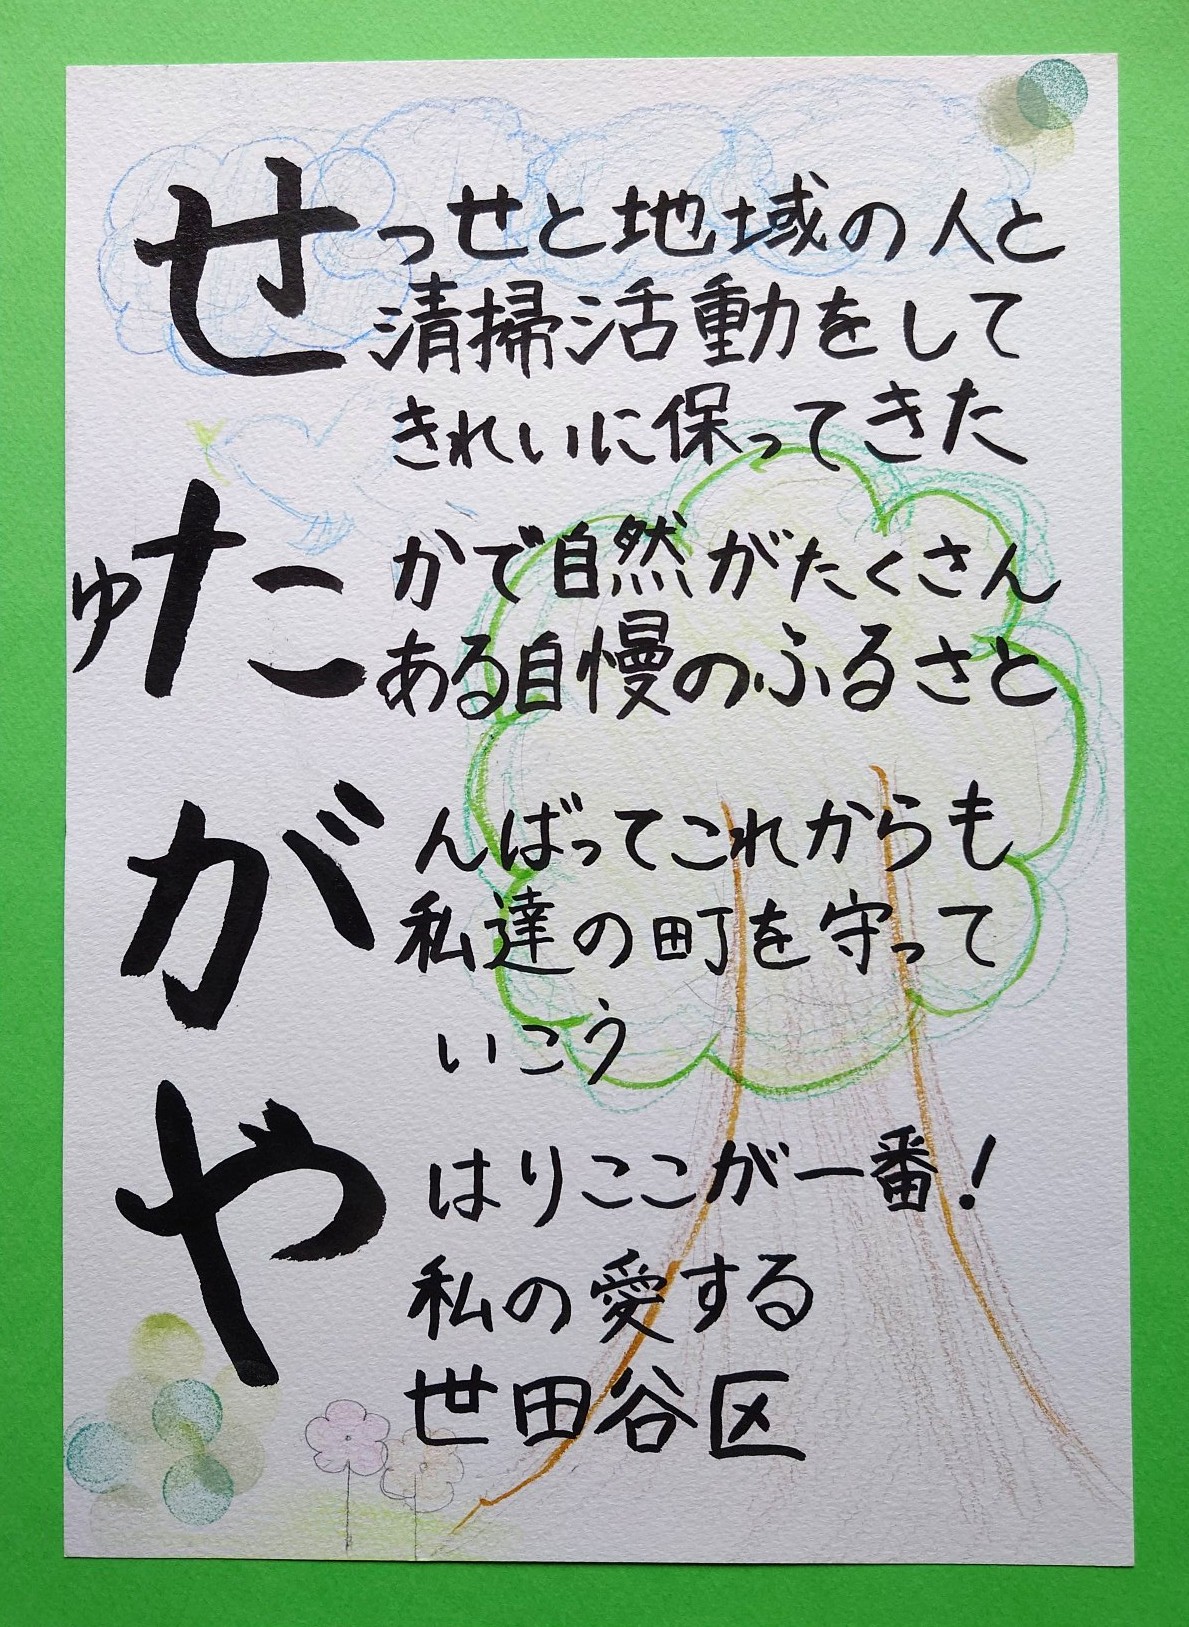 せっせと地域の人と
清掃活動をして
きれいに保ってきた
ゆたかで自然がたくさん
ある自慢のふるさと
がんばってこれからも
私達の町を守って
いこう
やはりここが一番!
私の愛する
世田谷区